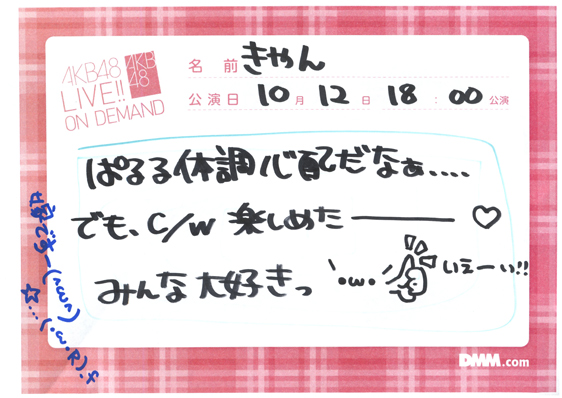 AKB48
LIVE!!
ON DEMAND
AKB
48
名前 きゃん
公演日 10月 12日 18:00公演
ぱるる体調心配だなぁ....
でも、C/W 楽しめたー♡
みんな大好きっ
`•ω•´ いえーい!!
DMM.com